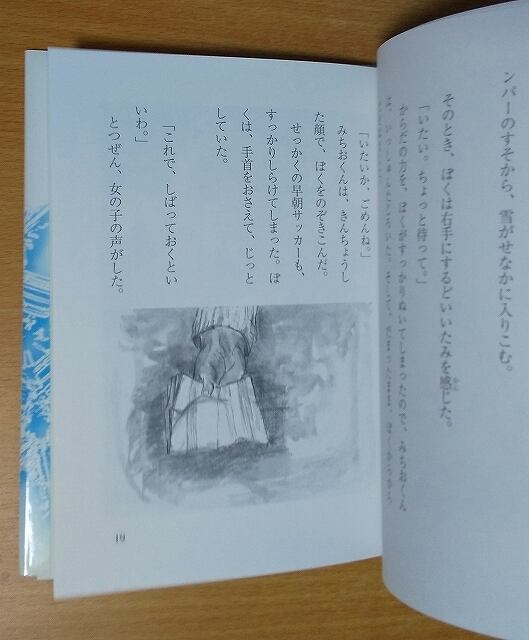 ンパーのすそから、雪がせなかに入りこむ。
そのとき、ぼくは右手にするどいいたみを感じた。
「いたい。ちょっと待って。」
からだの力を、ぼくがすっかりぬいてしまったので、みちおくん
「いたいか、ごめんね。」
みちおくんは、きんちょうし
た顔で、ぼくをのぞきこんだ。
せっかくの早朝サッカーも、
すっかりしらけてしまった。ぼ
くは、手首をおさえて、じっと
していた。
「これで、しばっておくとい
いわ。」
とつぜん、女の子の声がした。
19